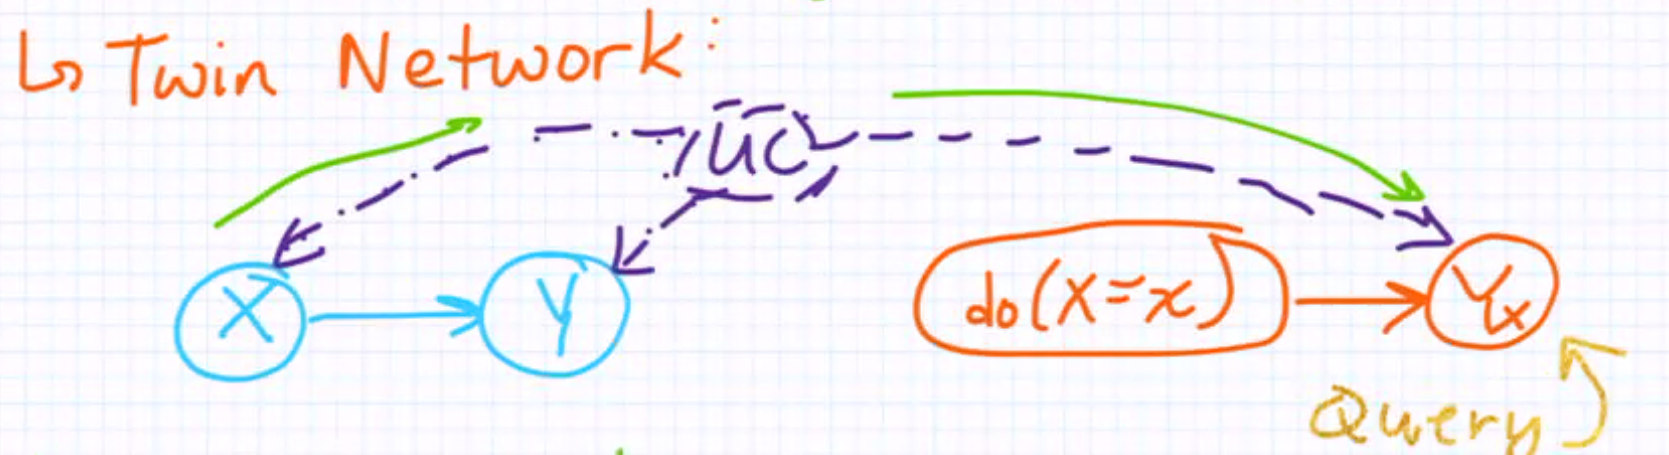 ↳ Twin Network:
UC
X Y do(X=x) Yx
Query